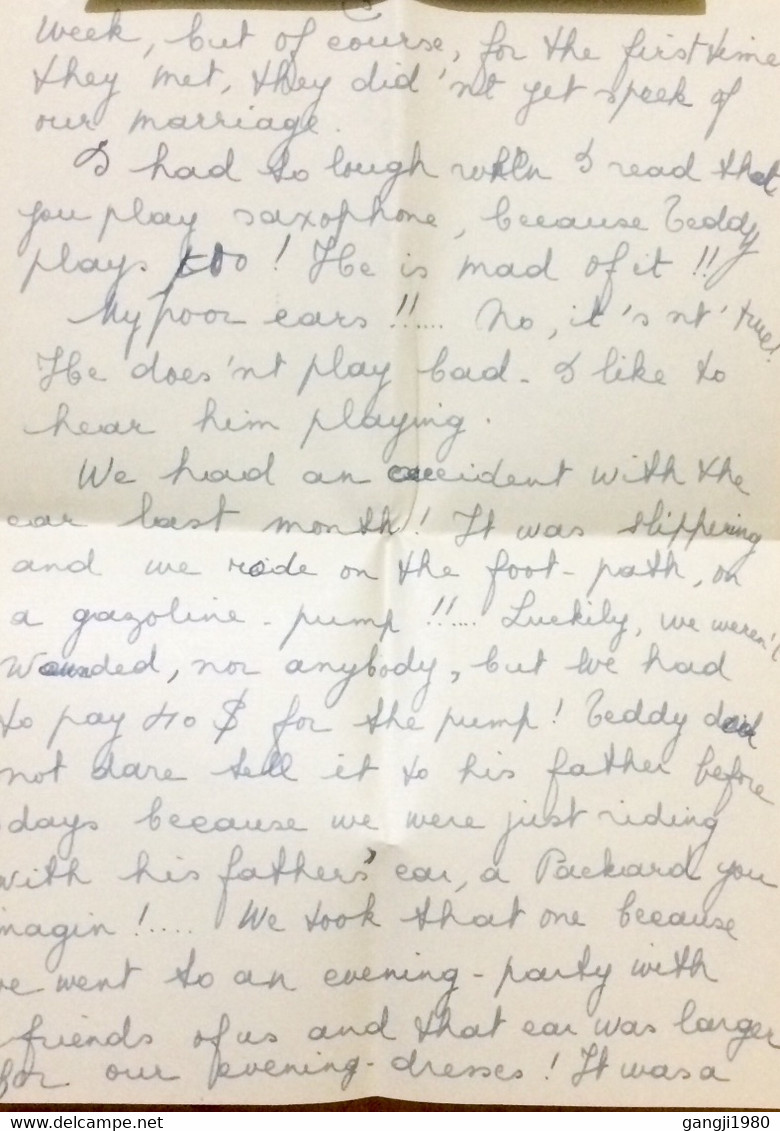 week, but of course, for the first time
they met, they did'nt yet speek of
our marriage.
I had to lough when I read that
you play saxophone, because Teddy
plays too! He is mad of it!!
My poor ears!!.... No, it's nt' true!
He does'nt play bad. I like to
hear him playing.
We had an accident with the
car last month! It was slippering
and we rode on the foot-path, on
a gazoline-pump!!.... Luckily, we weren't
wounded, nor anybody, but we had
to pay 40 $ for the pump! Teddy did
not dare tell it to his father before
days because we were just riding
with his father's car, a Packard you
imagin!.... We took that one because
we went to an evening-party with
friends of us and that car was larger
for our evening-dresses! It was a
gangji1980